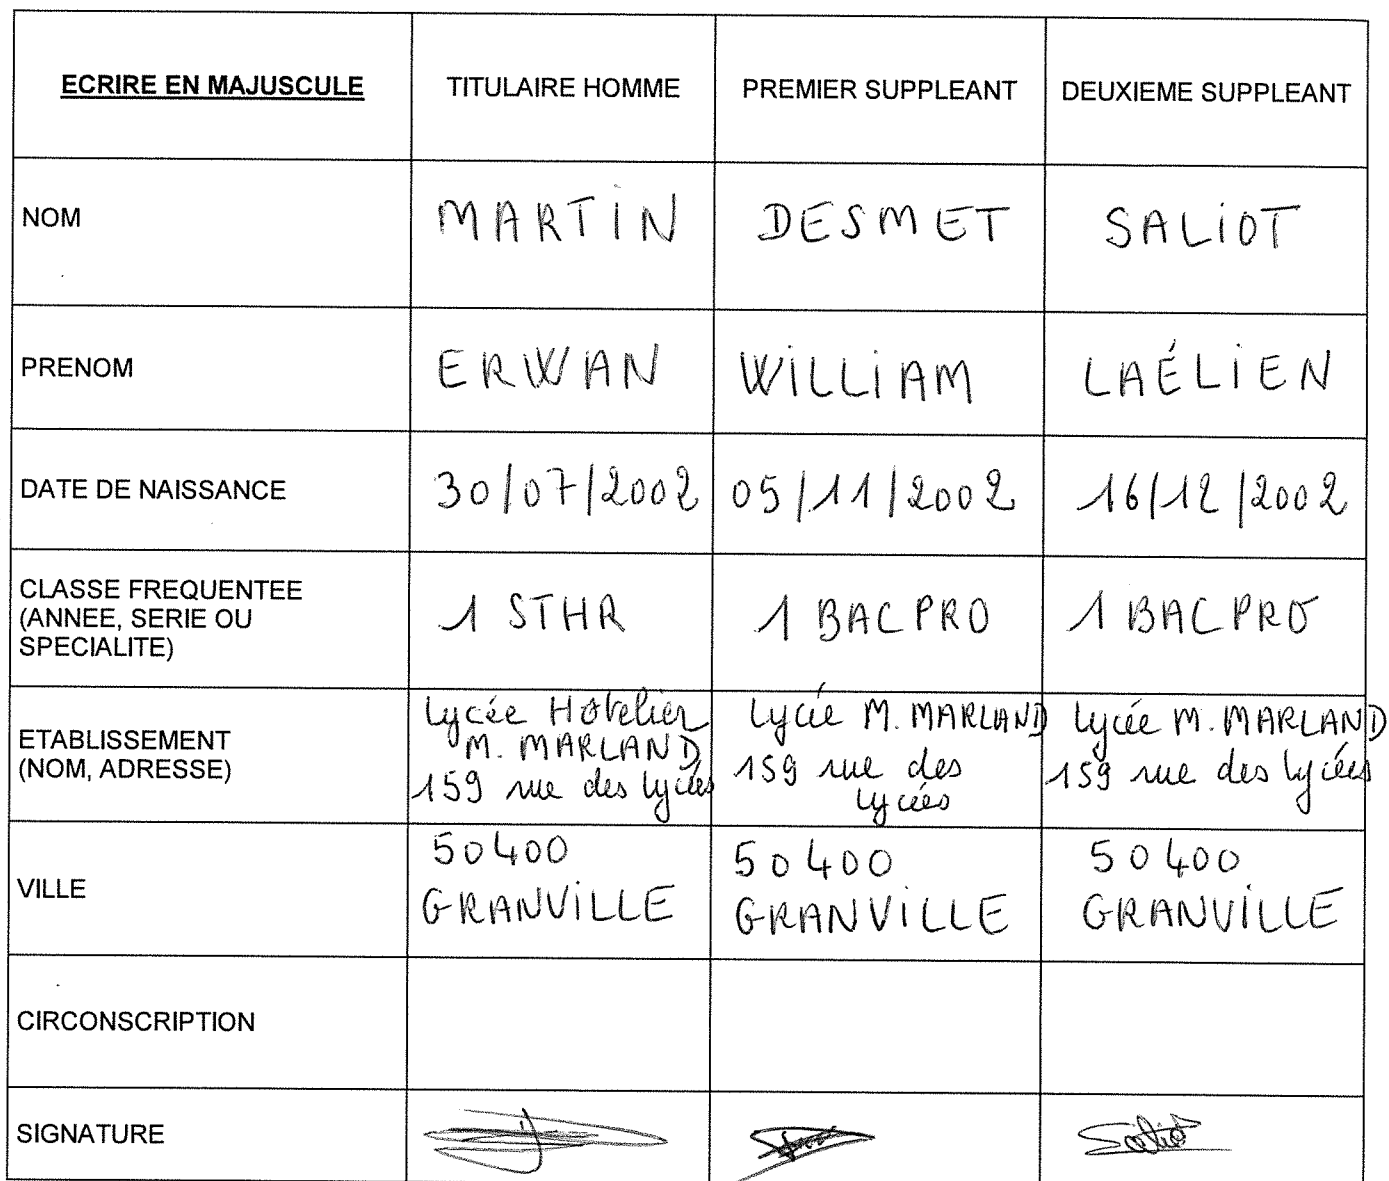 ECRIRE EN MAJUSCULE TITULAIRE HOMME PREMIER SUPPLEANT DEUXIEME SUPPLEANT
NOM MARTIN DESMET SALIOT
PRENOM ERWAN WILLIAM LAÉLIEN
DATE DE NAISSANCE 30/07/2002 05/11/2002 16/12/2002
CLASSE FREQUENTEE
(ANNEE, SERIE OU
SPECIALITE)
1 STHR 1 BAC PRO 1 BAC PRO
ETABLISSEMENT
(NOM, ADRESSE)
Lycée Hôtelier
M. MARLAND
159 rue des lycées
Lycée M. MARLAND
159 rue des
lycées
Lycée M. MARLAND
159 rue des lycées
VILLE
50400
GRANVILLE
50400
GRANVILLE
50400
GRANVILLE
CIRCONSCRIPTION
SIGNATURE